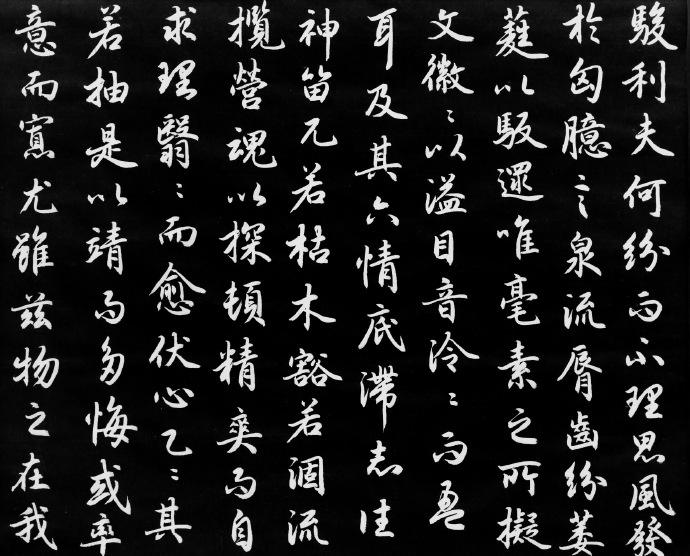 駿利夫何紛而不理思風發
於匈臆言泉流脣齒紛萎
蕤以馺遝唯毫素之所擬
文徽々以溢目音泠々而盈
耳及其六情底滯志往
神留兀若枯木豁若涸流
攬營魂以探頓精爽而自
求理翳々而愈伏心乙々其
若抽是以靖而多悔或率
意而寡尤雖茲物之在我